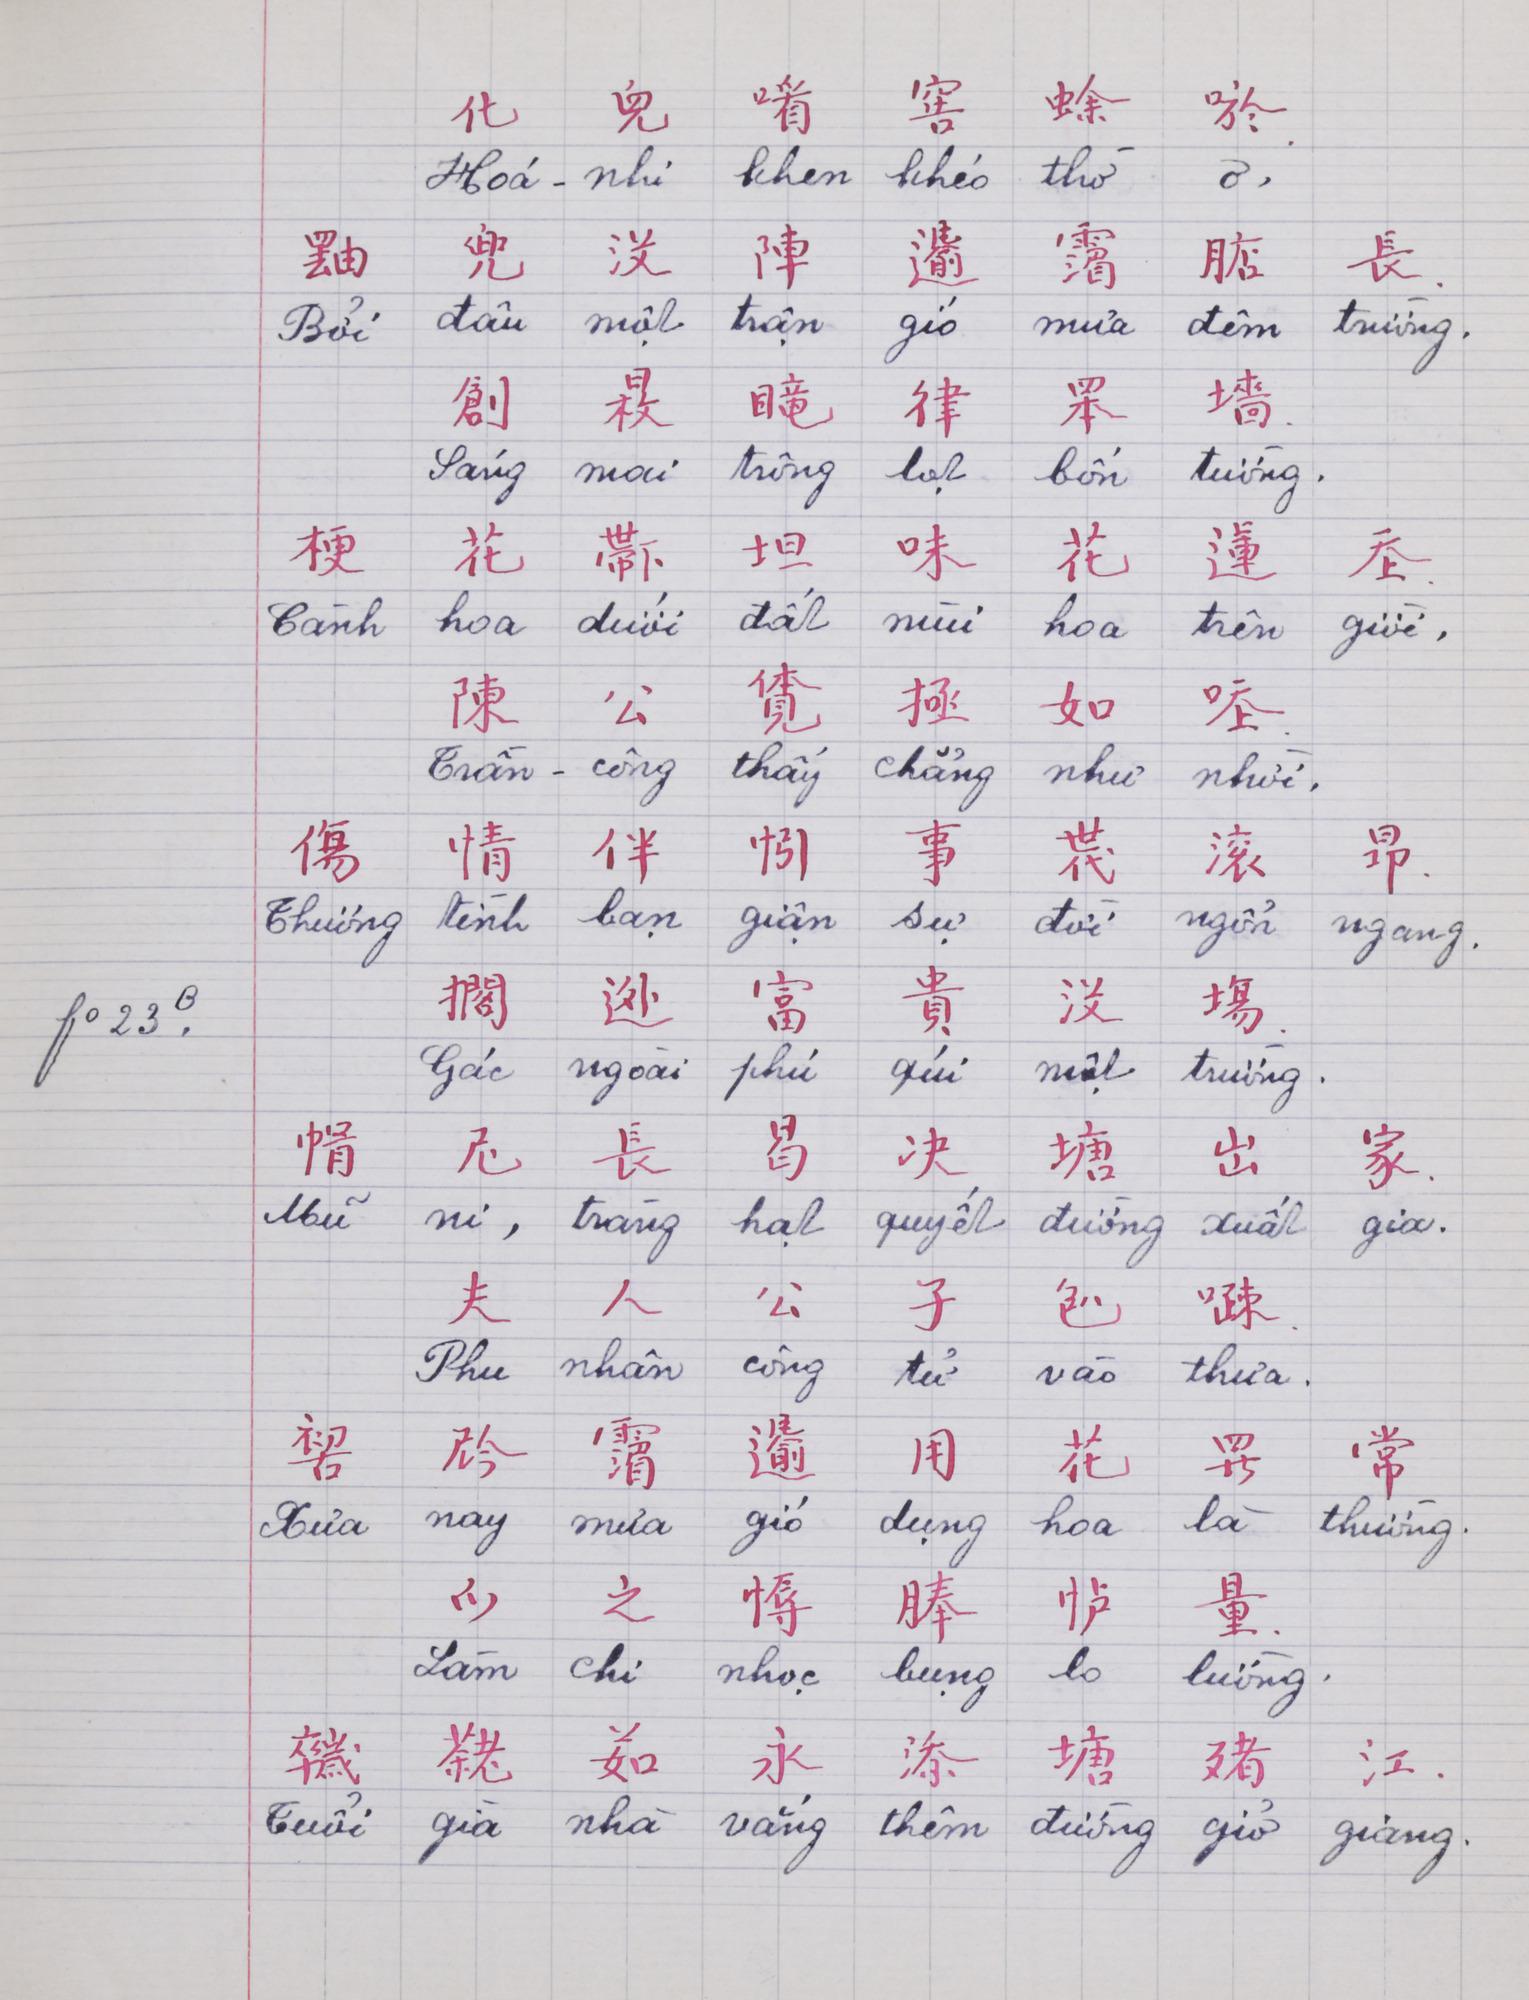 化 兒 𠸦 窖 蜍 唹.
Hoá - nhi khen khéo thờ ơ,
兜 沒 陣 𩙌 𩅹 𣎀 長.
Bởi đâu một trận gió mưa đêm trường.
創 𣋽 𥊚 律 𦊚 墻.
Sáng mai trông lọt bốn tường.
梗 花 𨑜 坦 味 花 𨕭 𡗶.
Cành hoa dưới đất mùi hoa trên giời,
陳 公 𧡊 拯 如 𠳨.
Trần - công thấy chẳng như nhời,
傷 情 伴 𢙬 事 𠁀 滚 昂.
Thương tình bạn giận sự đời ngổn ngang.
擱 外 富 貴 沒 塲.
Gác ngoài phú quí một trường.
fº 23ᴮ.
帽 尼 長 曷 决 塘 出 家.
Mũ ni, tràng hạt quyết đường xuất gia.
夫 人 公 子 𠓨 𠽔.
Phu nhân công tử vào thưa.
𠸗 𠉞 𩅹 𩙌 用 花 𦋦 常
Xưa nay mưa gió dụng hoa là thường.
之 𢢯 𦝄 𢥈 量.
Làm chi nhọc bụng lo lường.
𢆫 𦓅 茹 永 添 塘 𣩂 江.
Tuổi già nhà vắng thêm đường giở giang.